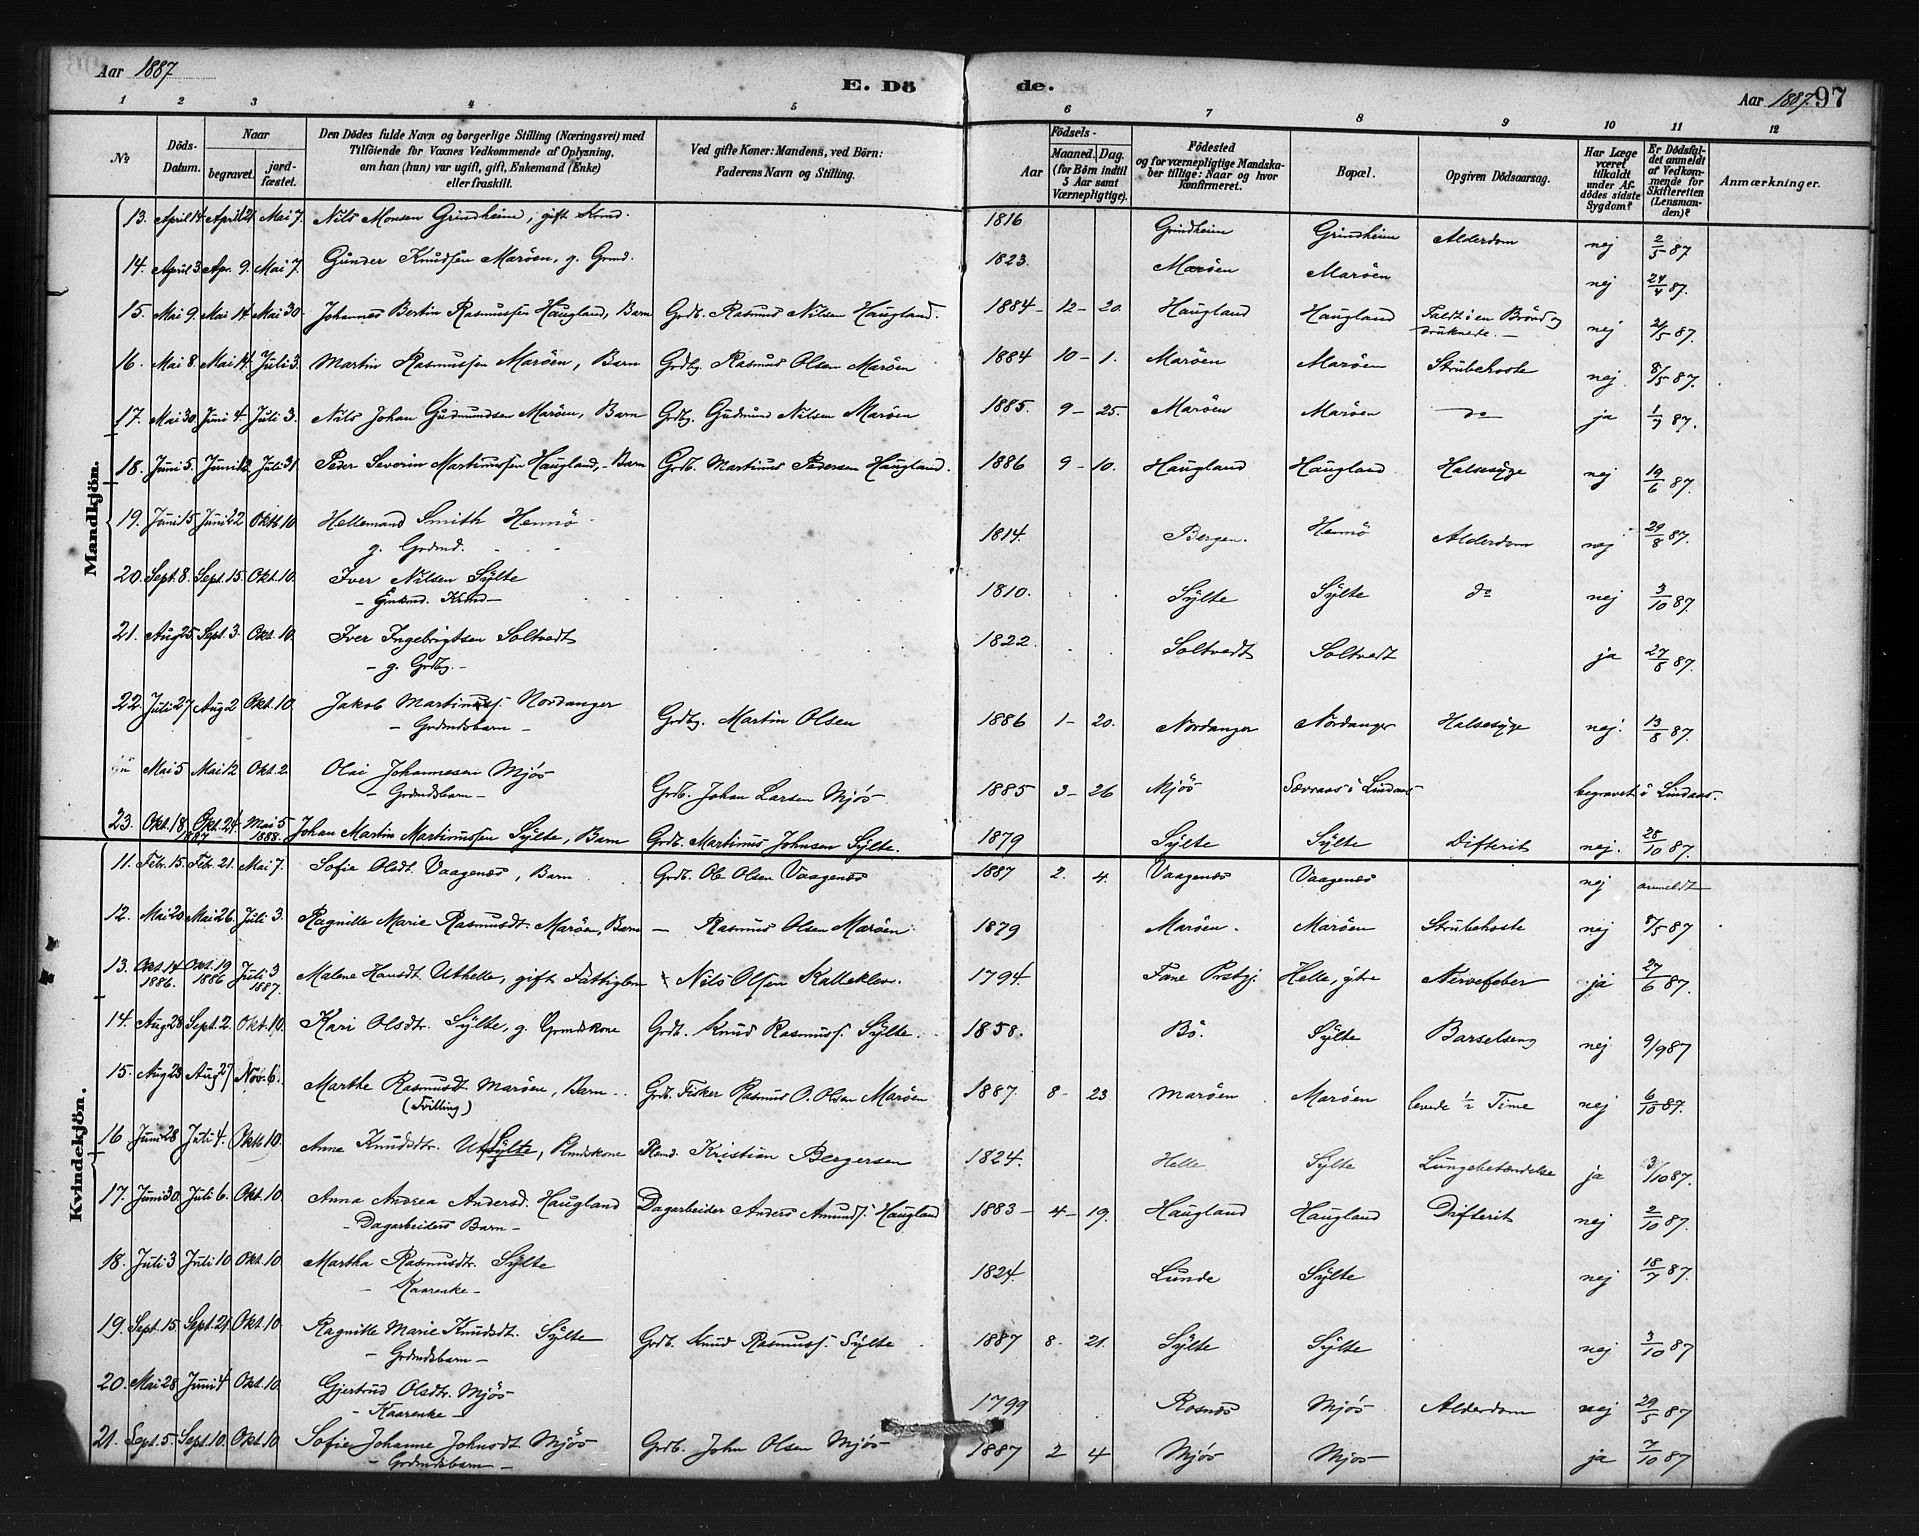 Aar 1887
E. Dö de.
Aar 1887. 97
1 2 3 4 5 6 7 8 9 10 11 12
No
Döds-Datum.
Naar
begravet.
jord-fæstet.
Den Dödes fulde Navn og borgerlige Stilling (Næringsvei) med
Tilföiende for Voxnes Vedkommende af Oplysning,
om han (hun) var ugift, gift, Enkemand (Enke)
eller fraskilt.
Ved gifte Koner: Mandens, ved Börn:
Faderens Navn og Stilling.
Födsels-
Aar
Maaned. Dag.
(for Börn indtil
5 Aar samt
Værnepligtige).
Födested
og for værnepligtige Mandska-
ber tillige: Naar og hvor
konfirmeret.
Bopæl.
Opgiven Dödsaarsag.
Har Læge
været
tilkaldt
under Af-
dödes sidste
Sygdom?
Er Dödsfal-
det anmeldt
af Vedkom-
mende for
Skifteretten
(Lensman-
den)?
Anmærkninger.
Mandkjön.
13. April 14 April 21 Mai 7. Nils Monsen Grindheim, gift Kmd. 1816 Grindheim Grindheim Alderdom nej 2/5 87
14. April 3. Apr. 9. Mai 7. Gunder Knudsen Maröen, g. Grmd. 1823. Maröen Maröen nej 24/4 87.
15. Mai 9. Mai 14. Mai 30. Johannes Bertin Rasmussen Haugland, Barn Grdb. Rasmus Nilsen Haugland. 1884 - 12 - 20. Haugland Haugland Faldt i en Brönd og
druknede. nej 2/5 87.
16. Mai 8. Mai 14. Juli 3. Martin Rasmussen Maröen, Barn Grdbg. Rasmus Olsen Maröen 1884 10 - 1. Maröen Maröen Strubehoste nej 8/5 87.
17. Mai 30. Juni 4. Juli 3. Nils Johan Gudmundsen Maröen, Barn Grdbg. Gudmund Nilsen Maröen 1885. 9 - 25. Maröen Maröen do ja 1/7 87.
18. Juni 5. Juni 12. Juli 31 Peder Severin Martinussen Haugland, Barn Grdb. Martinus Pedersen Haugland. 1886 9 - 10. Haugland Haugland Halsesyge nej 19/6 87.
19. Juni 15 Juni 22 Okt. 10. Hellemand Smith Hennö
g. Grdmd. 1814. Bergen. Hennö Alderdom nej 29/8 87.
20. Sept. 8. Sept. 15. Okt. 10. Iver Nilsen Sylte
- Enkmd. Kmd - 1810. Sylte Sylte do nej 3/10 87.
21. Aug 25. Sept. 3. Okt. 10 Iver Ingebrigtsen Soltvedt
- g. Grdbg. - 1822. Soltvedt Soltvedt ja 27/8 87.
22. Juli 27 Aug 2 Okt. 10. Jakob Martinuss. Nordanger
- Grdmdsbarn - Grdbg. Martin Olsen 1886 1 - 20. Nordanger Nordanger Halsesyge nej. 13/8 87.
Mai 5 Mai 12 Okt. 2. Olai Johannesen Mjös
- Grdmdsbarn - Grdb. Johan Larsen Mjös 1885 3 - 26 Mjös Sævraas i Lindaas begravet i Lindaas.
23. Okt. 18 1887 Okt. 24. Mai 5 1888. Johan Martin Martinussen Sylte, Barn Grdb. Martinus Johnsen Sylte. 1879 Sylte Sylte Difterit nej. 28/10 87.
Kvindekjön.
11. Febr. 15. Febr. 21. Mai 7. Sofie Olsdt. Vaagenæs, Barn Grdb. Ole Olsen Vaagenæs 1887 2. 4. Vaagenæs Vaagenæs nej anmeldt
12. Mai 20. Mai 26. Juli 3. Ragnilde Marie Rasmusdt. Maröen, Barn - Rasmus Olsen Maröen 1879 Maröen. Maröen Strubehoste nej 8/5 87
13. Okt. 14 1886. Okt. 19 1886 Juli 3 1887. Malene Hansdt. Uthelle, gift Fattiglem Nils Olsen Kalleklev. 1794. Fane Prstgj. Helle, ytre Nervefeber ja 27/6 87.
14. Aug 28 Sept. 2. Okt. 10. Kari Olsdtr. Sylte, g. Grmdskone Grdb. Knud Rasmuss. Sylte. 1858. Bö. Sylte Barselseng nej 9/9 87
15. Aug 23 Aug 27 Nov. 6. Marthe Rasmusdt Maröen, Barn.
(Tvilling) Grdb. Fisker Rasmus O. Olsen Maröen 1887. 8 - 23 Maröen Maröen levede 1/2 Time nej 6/10 87.
16 Juni 28 Juli 4. Okt. 10. Anne Knudsdtr. Sylte, Plmdskone Plmd. Kristian Bergersen 1824. Helle Sylte Lungebetændelse ja 3/10 87.
17. Juni 30. Juli 6. Okt. 10 Anna Andrea Andersd. Haugland
- Dagarbeiders Barn - Dagarbeider Anders Amunds. Haugland 1883 - 4 - 19. Haugland Haugland Difterit nej 2/10 87.
18. Juli 3 Juli 10 Okt. 10. Martha Rasmusdtr. Sylte
- Kaarenke - 1824. Lunde Sylte nej 18/7 87.
19. Sept. 15. Sept. 21. Okt. 10 Ragnilde Marie Knudsdt. Sylte
- Grdmdsbarn - Grdb. Knud Rasmuss. Sylte 1887 8 - 21. Sylte Sylte nej 3/10 87
20. Mai 28 Juni 4 Okt. 10. Gjertrud Olsdtr. Mjös
- Kaarenke - 1799 Rosnæs Mjös Alderdom nej 29/5 87
21. Sept. 5. Sept. 10. Okt. 10 Sofie Johanne Johnsdt. Mjös
- Grdmdsbarn - Grdb. John Olsen Mjös 1887 2 4 Mjös Mjös ja 7/10 87